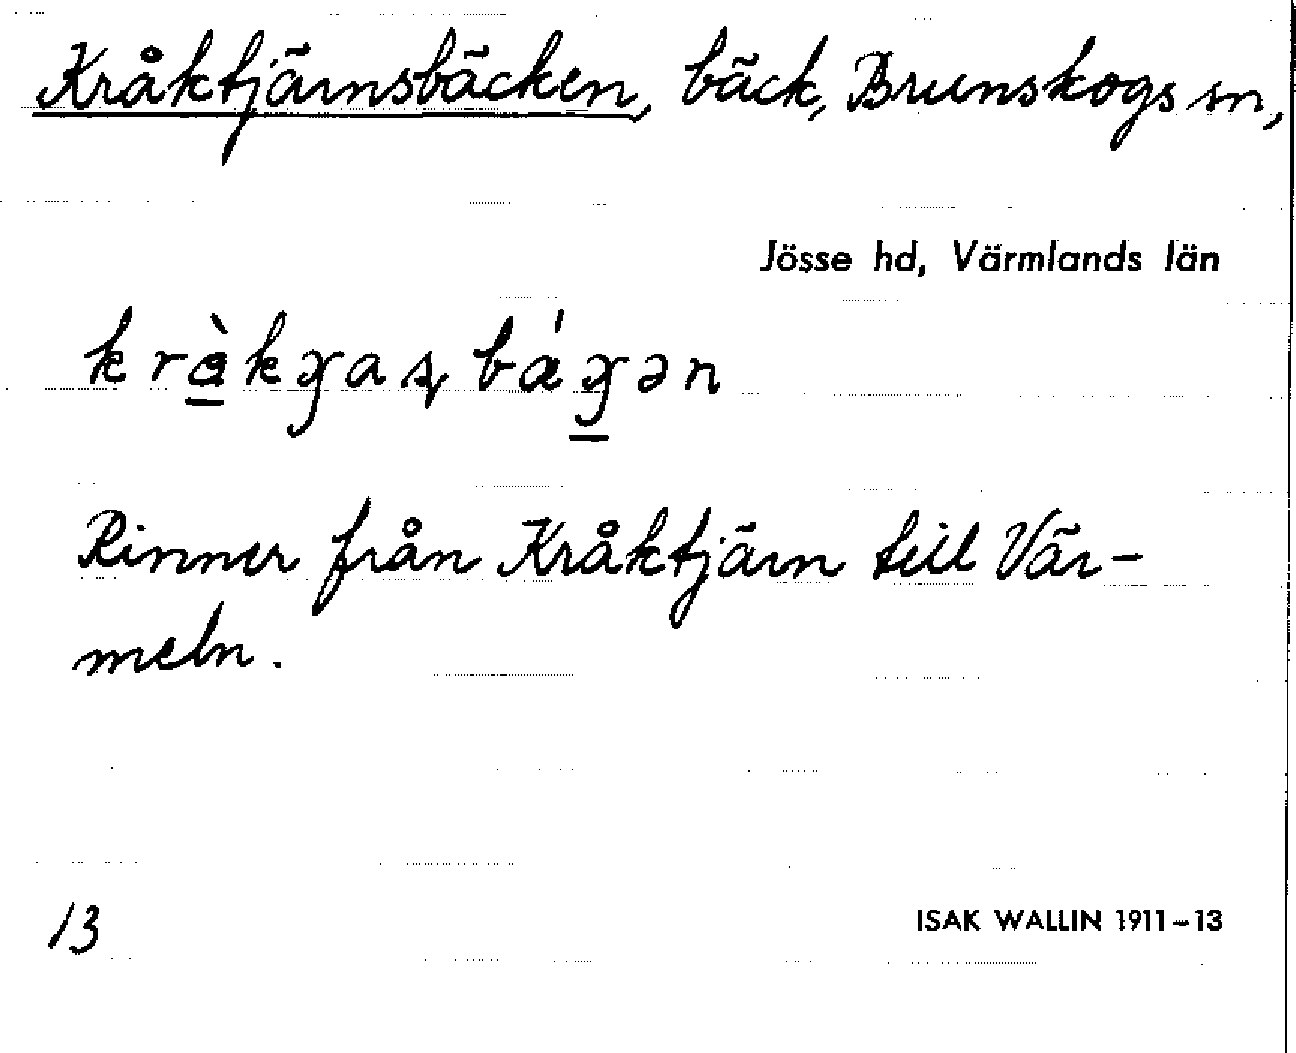 Kråktjärnsbäcken, bäck, Brunskogs sn,
Jösse hd, Värmlands län
Rinner från Kråktjärn till Vär-
meln.
13
ISAK WALLIN 1911-13